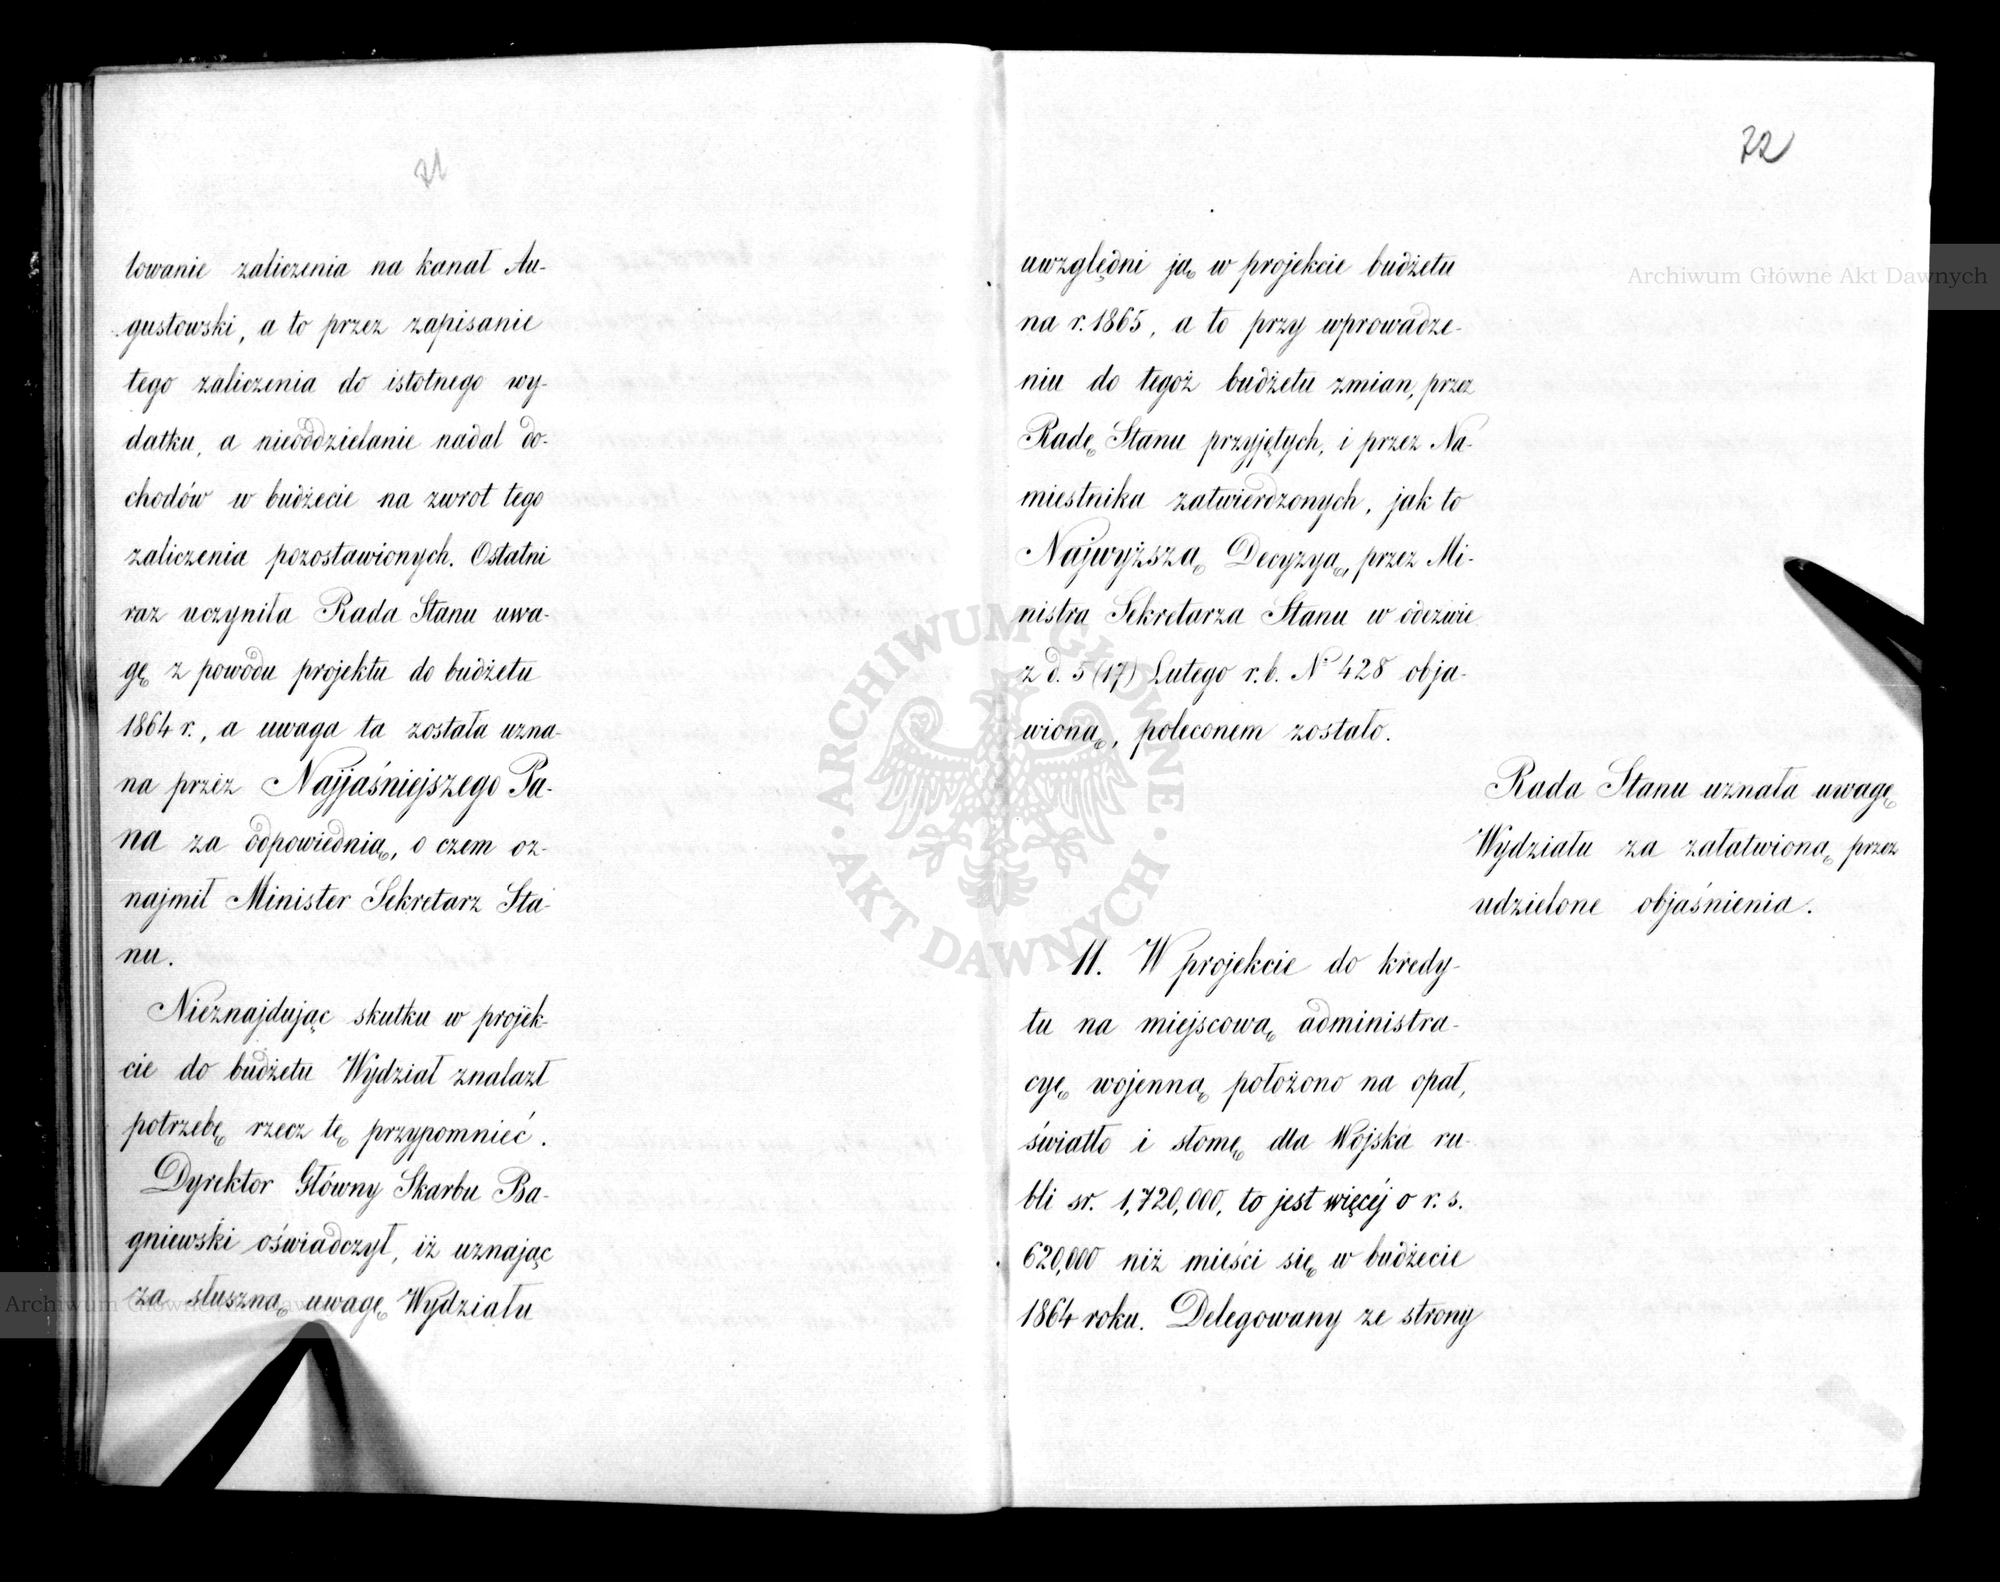 71
towanie zaliczenia na kanał Au-
gustowski, a to przez zapisanie
tego zaliczenia do istotnego wy-
datku, a nieoddzielanie nadal do-
chodów w budżecie na zwrot tego
zaliczenia pozostawionych. Ostatni
raz uczyniła Rada Stanu uwa-
gę z powodu projektu do budżetu
1864 r., a uwaga ta została uzna-
na przez Najjaśniejszego Pa-
na za odpowiednią, o czem oz-
najmił Minister Sekretarz Sta-
nu.
Nieznajdując skutku w projek-
cie do budżetu Wydział znalazł
potrzebę rzecz tę przypomnieć.
Dyrektor Główny Skarbu Ba-
gniewski oświadczył, iż uznając
za słuszną uwagę Wydziału
72
uwzględni ją w projekcie budżetu
na r. 1865, a to przy wprowadze-
niu do tegoż budżetu zmian, przez
Radę Stanu przyjętych, i przez Na-
miestnika zatwierdzonych, jak to
Najwyższą Decyzyą, przez Mi-
nistra Sekretarza Stanu w odezwie
z d. 5 (17) Lutego r. b. Nº 428 obja-
wioną, poleconem zostało.
Rada Stanu uznała uwagę
Wydziału za załatwioną przez
udzielone objaśnienia.
11. W projekcie do kredy-
tu na miejscową administra-
cyę wojenną położono na opał,
światło i słomę dla Wojska ru-
bli sr. 1,720,000, to jest więcéj o r. s.
620,000 niż mieści się w budżecie
1864 roku. Delegowany ze strony
Archiwum Główne Akt Dawnych
ARCHIWUM GŁÓWNE
AKT DAWNYCH
Archiwum Główne Akt Dawnych